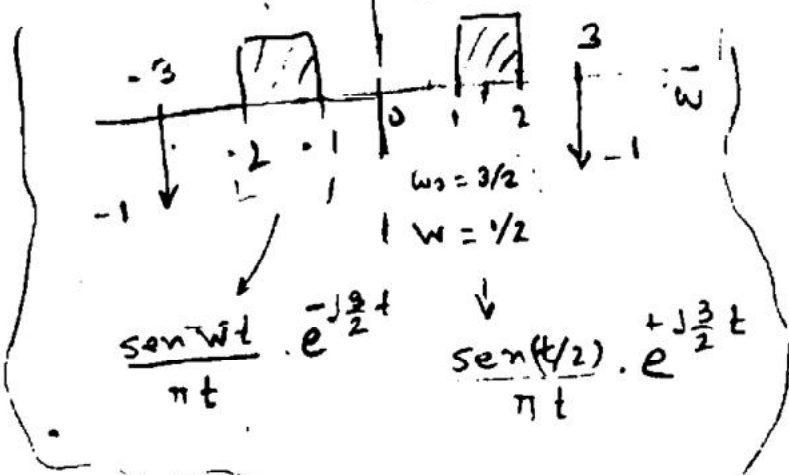 -3 3
-2 -1 0 1 2 w
-1 -1
w₀ = 3/2
W = 1/2
sen Wt / πt · e^-j3/2 t sen(t/2) / πt · e^+j3/2 t